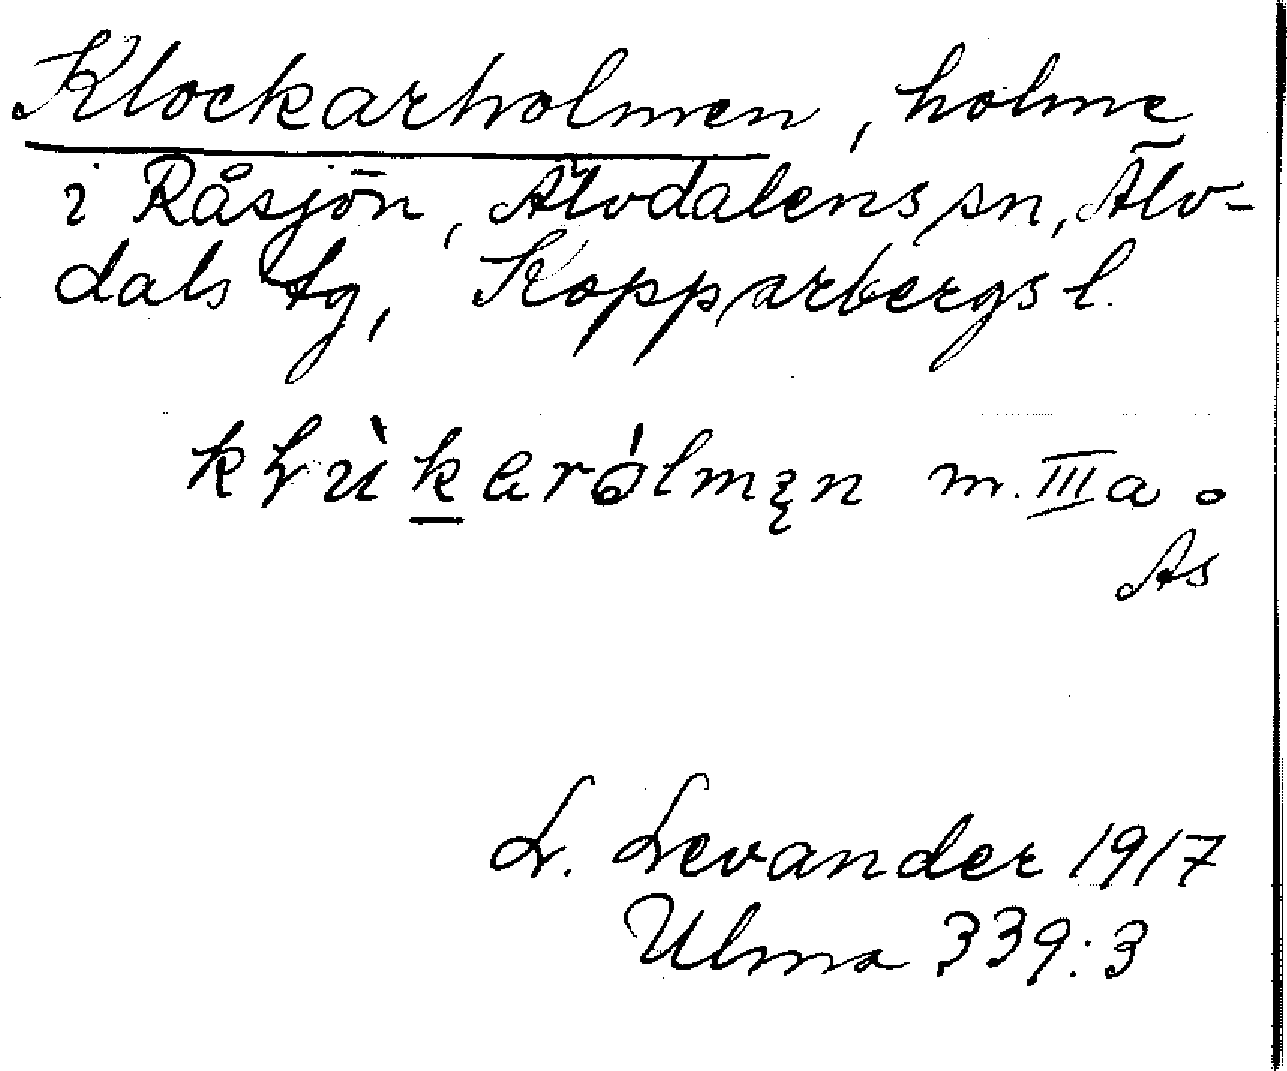 Klockarholmen, holme
i Råsjön, Älvdalens sn, Älv-
dals tg, Kopparbergs l.
m. III a.
Ås
L. Levander 1917
Ulma 339:3